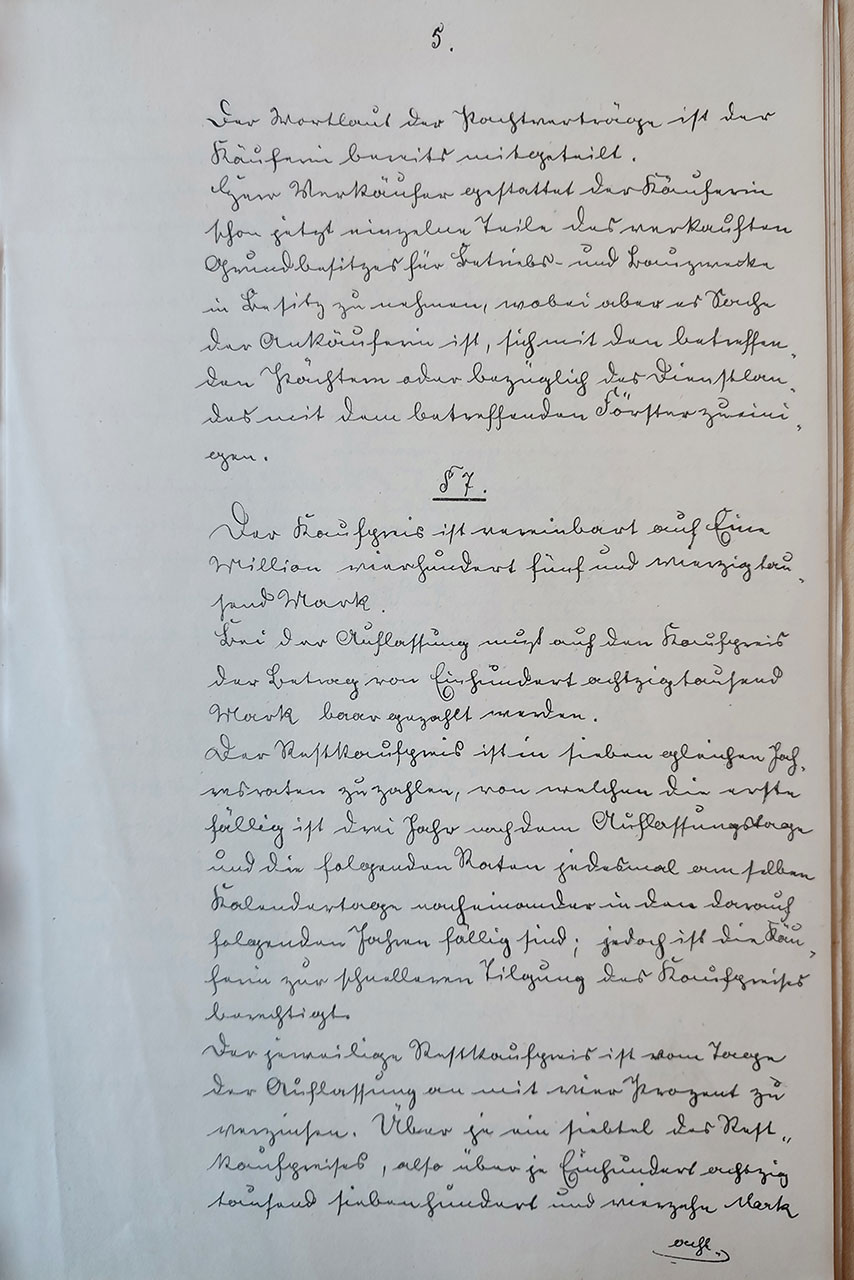 5.
Der Wortlaut der Pachtverträge ist der
Käuferin bereits mitgeteilt.
Herr Verkäufer gestattet der Käuferin
schon jetzt einzelne Teile des verkauften
Grundbesitzes für Betriebs- und Bauzwecke
in Besitz zu nehmen, wobei aber es Sache
der Ankäuferin ist, sich mit den betreffen-
den Pächtern oder bezüglich des Dienstlan-
des mit dem betreffenden Förster zu eini-
gen.
§ 7.
Der Kaufpreis ist vereinbart auf Eine
Million vierhundert fünf und vierzig tau-
send Mark.
Bei der Auflassung muß auf den Kaufpreis
der Betrag von Einhundert achtzigtausend
Mark baar gezahlt werden.
Der Restkaufpreis ist in sieben gleichen Jah-
resraten zu zahlen, von welchen die erste
fällig ist drei Jahr nach dem Auflassungstage
und die folgenden Raten jedesmal am selben
Kalendertage nacheinander in den darauf
folgenden Jahren fällig sind; jedoch ist die Käu-
ferin zur schnelleren Tilgung des Kaufpreises
berechtigt.
Der jeweilige Restkaufpreis ist vom Tage
der Auflassung an mit vier Prozent zu
verzinsen. Über je ein siebtel des Rest-
kaufpreises, also über je Einhundert achtzig
tausend siebenhundert und vierzehn Mark
acht.